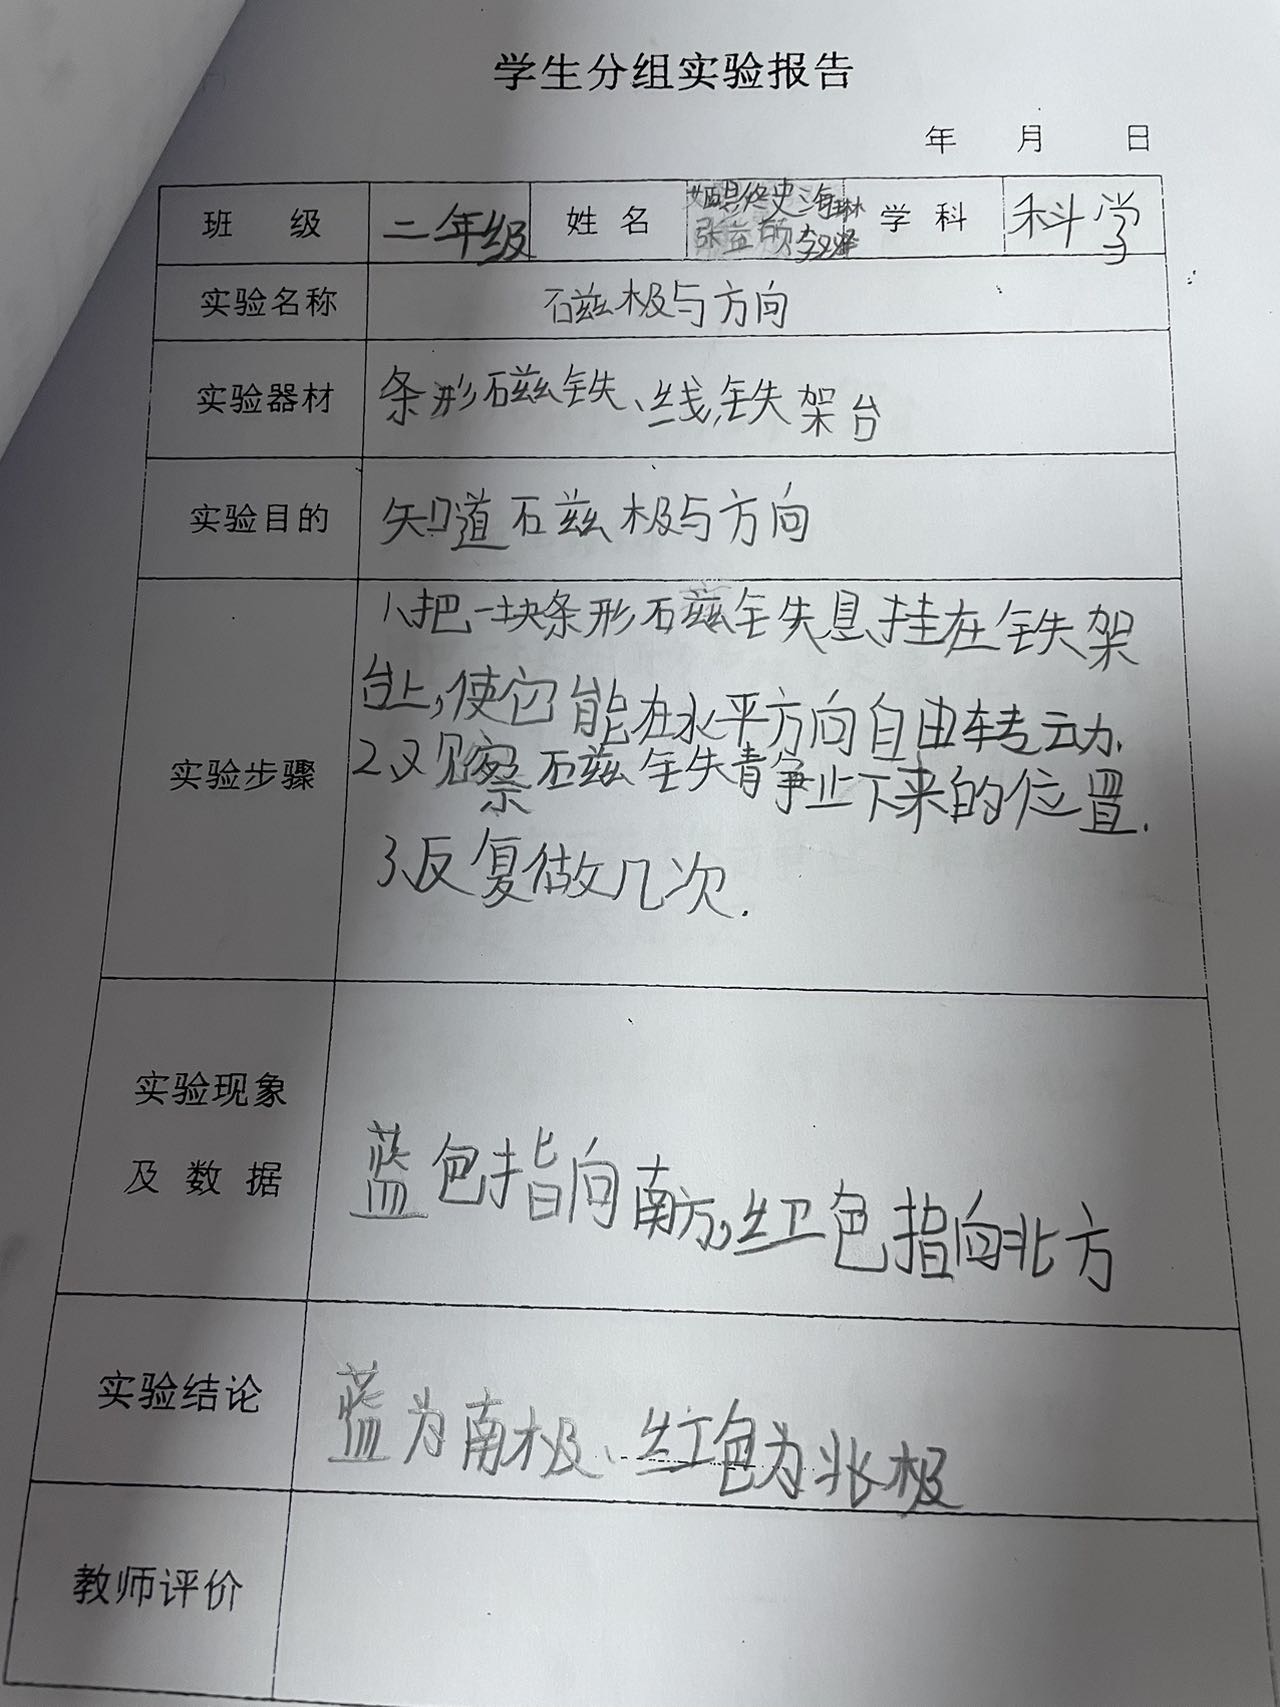 学生分组实验报告
年 月 日
班 级 二年级 姓名 学科 科学
张益硕
实验名称 磁极与方向
实验器材 条形磁铁、线,铁架台
实验目的 知道磁极与方向
实验步骤
1、把一块条形磁铁悬挂在铁架
台上,使它能在水平方向自由转动.
2、观察磁铁静止下来的位置.
3、反复做几次.
实验现象
及数据
蓝色指向南方,红色指向北方
实验结论 蓝为南极、红色为北极
教师评价